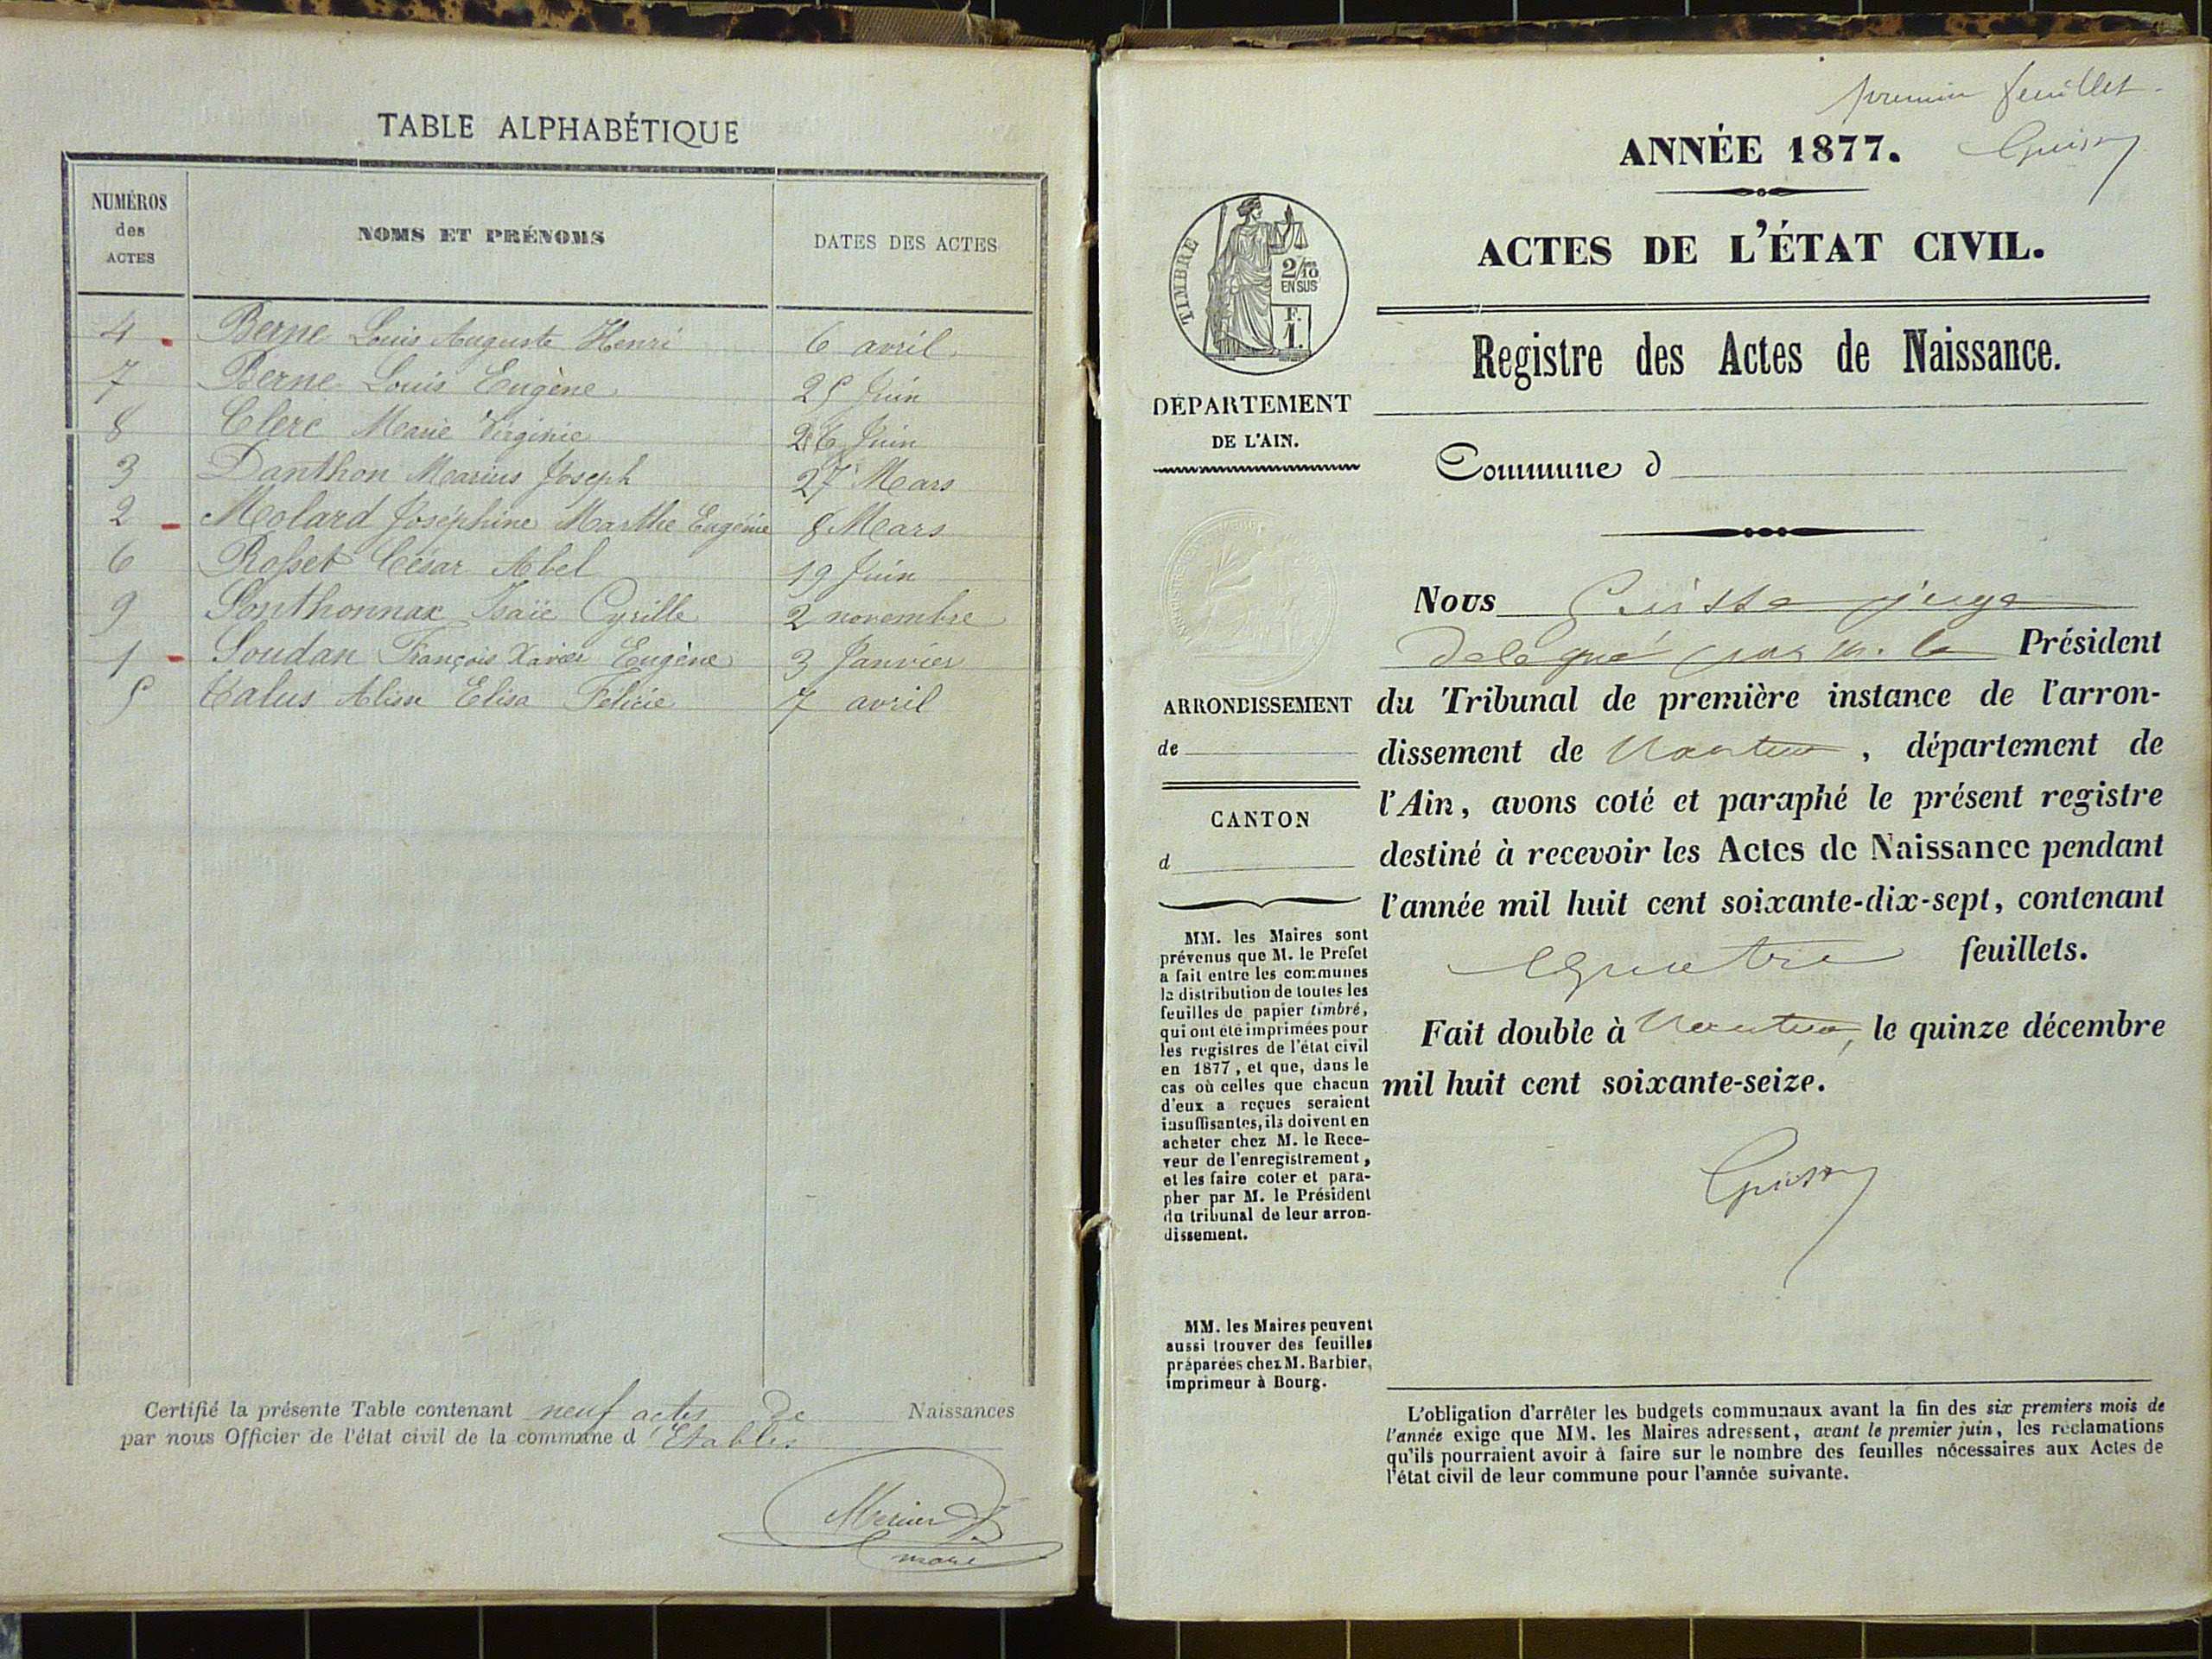 TABLE ALPHABÉTIQUE
NUMÉROS
des
ACTES
NOMS ET PRÉNOMS
DATES DES ACTES
4 Berne Louis Auguste Henri 6 avril
7 Berne Louis Eugène 25 Juin
8 Clerc Marie Virginie 26 Juin
3 Danthon Marius Joseph 27 Mars
2 Molard Joséphine Marthe Eugénie 8 Mars
6 Rosset César Abel 19 Juin
9 Sonthonnax Isaïe Cyrille 2 novembre
1 Soudan François Xavier Eugène 3 Janvier
5 Elisa Félicie 7 avril
Certifié la présente Table contenant neuf actes De Naissances
par nous Officier de l'état civil de la commune d'Etables
maire
premier feuillet
ANNÉE 1877.
ACTES DE L'ÉTAT CIVIL.
TIMBRE
2/10
EN SUS
F.
1.
Registre des Actes de Naissance.
DÉPARTEMENT
DE L'AIN.
Commune d
Nous juge
délégué par M. le Président
du Tribunal de première instance de l'arron-
dissement de Nantua, département de
l'Ain, avons coté et paraphé le présent registre
destiné à recevoir les Actes de Naissance pendant
l'année mil huit cent soixante-dix-sept, contenant
quatre feuillets.
Fait double à Nantua, le quinze décembre
mil huit cent soixante-seize.
ARRONDISSEMENT
de
CANTON
d
MM. les Maires sont
prévenus que M. le Préfet
a fait entre les communes
la distribution de toutes les
feuilles de papier timbré,
qui ont été imprimées pour
les registres de l'état civil
en 1877, et que, dans le
cas où celles que chacun
d'eux a reçues seraient
insuffisantes, ils doivent en
acheter chez M. le Rece-
veur de l'enregistrement,
et les faire coter et para-
pher par M. le Président
du tribunal de leur arron-
dissement.
MM. les Maires peuvent
aussi trouver des feuilles
préparées chez M. Barbier,
imprimeur à Bourg.
L'obligation d'arrêter les budgets communaux avant la fin des six premiers mois de
l'année exige que MM. les Maires adressent, avant le premier juin, les réclamations
qu'ils pourraient avoir à faire sur le nombre des feuilles nécessaires aux Actes de
l'état civil de leur commune pour l'année suivante.